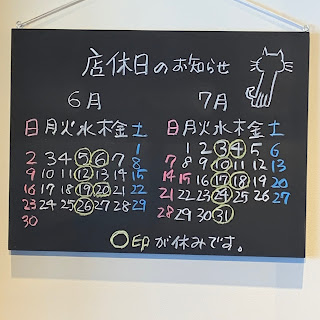 店休日のお知らせ
6月
日月火水木金土
1
2 3 4 5 6 7 8
9 10 11 12 13 14 15
16 17 18 19 20 21 22
23 24 25 26 27 28 29
30
7月
日月火水木金土
1 2 3 4 5 6
7 8 9 10 11 12 13
14 15 16 17 18 19 20
21 22 23 24 25 26 27
28 29 30 31
○印が休みです。